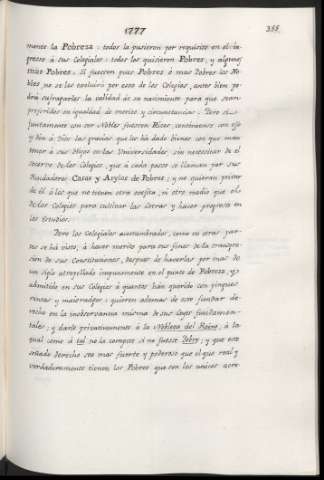 1777
355.
mente la Pobreza: todos la pusieron por requisito en el in-
greso á sus Colegiales: todos los quisieron Pobres; y algunos
mas Pobres. Si fuesen pues Pobres ó mas Pobres los No-
bles no se les excluirá por eso de los Colegios, antes bien po-
drá sufragarles la calidad de su nacimiento para que sean
preferidos en igualdad de meritos y circunstancias. Pero si
juntamente con ser Nobles fuesen Ricos, contentense con eso
y den á Dios las gracias que les há dado bienes con que man-
tener á sus Hijos en las Universidades sin necesitar de el
socorro de los Colegios, que á cada paso se llaman por sus
Fundadores Casas y Asylos de Pobres; y no quieran privar
de él á los que no tienen otro asylo, ni otro medio que el
de los Colegios para cultivar las Letras y hacer progreso en
los Estudios.
Pero los Colegiales acostumbrados, como en otras par-
tes se há visto, á hacer merito para sus fines de la transgre-
sión de sus Constituciones, despues de haverlas por mas de
un siglo atropellado impunemente en el punto de Pobreza, y
admitido en sus Colegios á quantos han querido con pingues
rentas y maiorazgos: quieren ademas de esto fundar de-
recho en la inobservancia misma de sus Leyes fundamen-
tales; y darle privativamente á la Nobleza del Reino, á la
qual como á tal no la compete si no fuese Pobre; y que este
soñado derecho sea mas fuerte y poderoso que el que real y
verdaderamente tienen los Pobres que son los unicos acre-